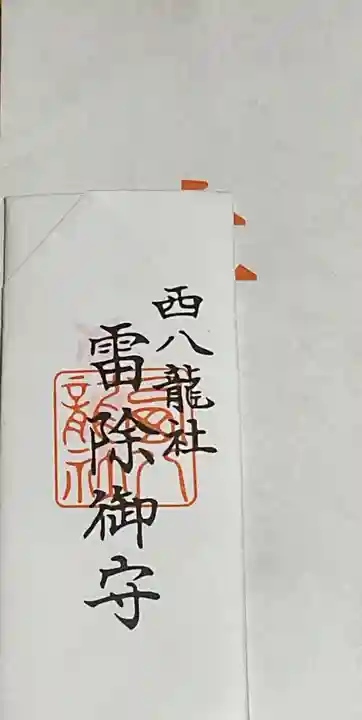 西八龍社
雷除御守